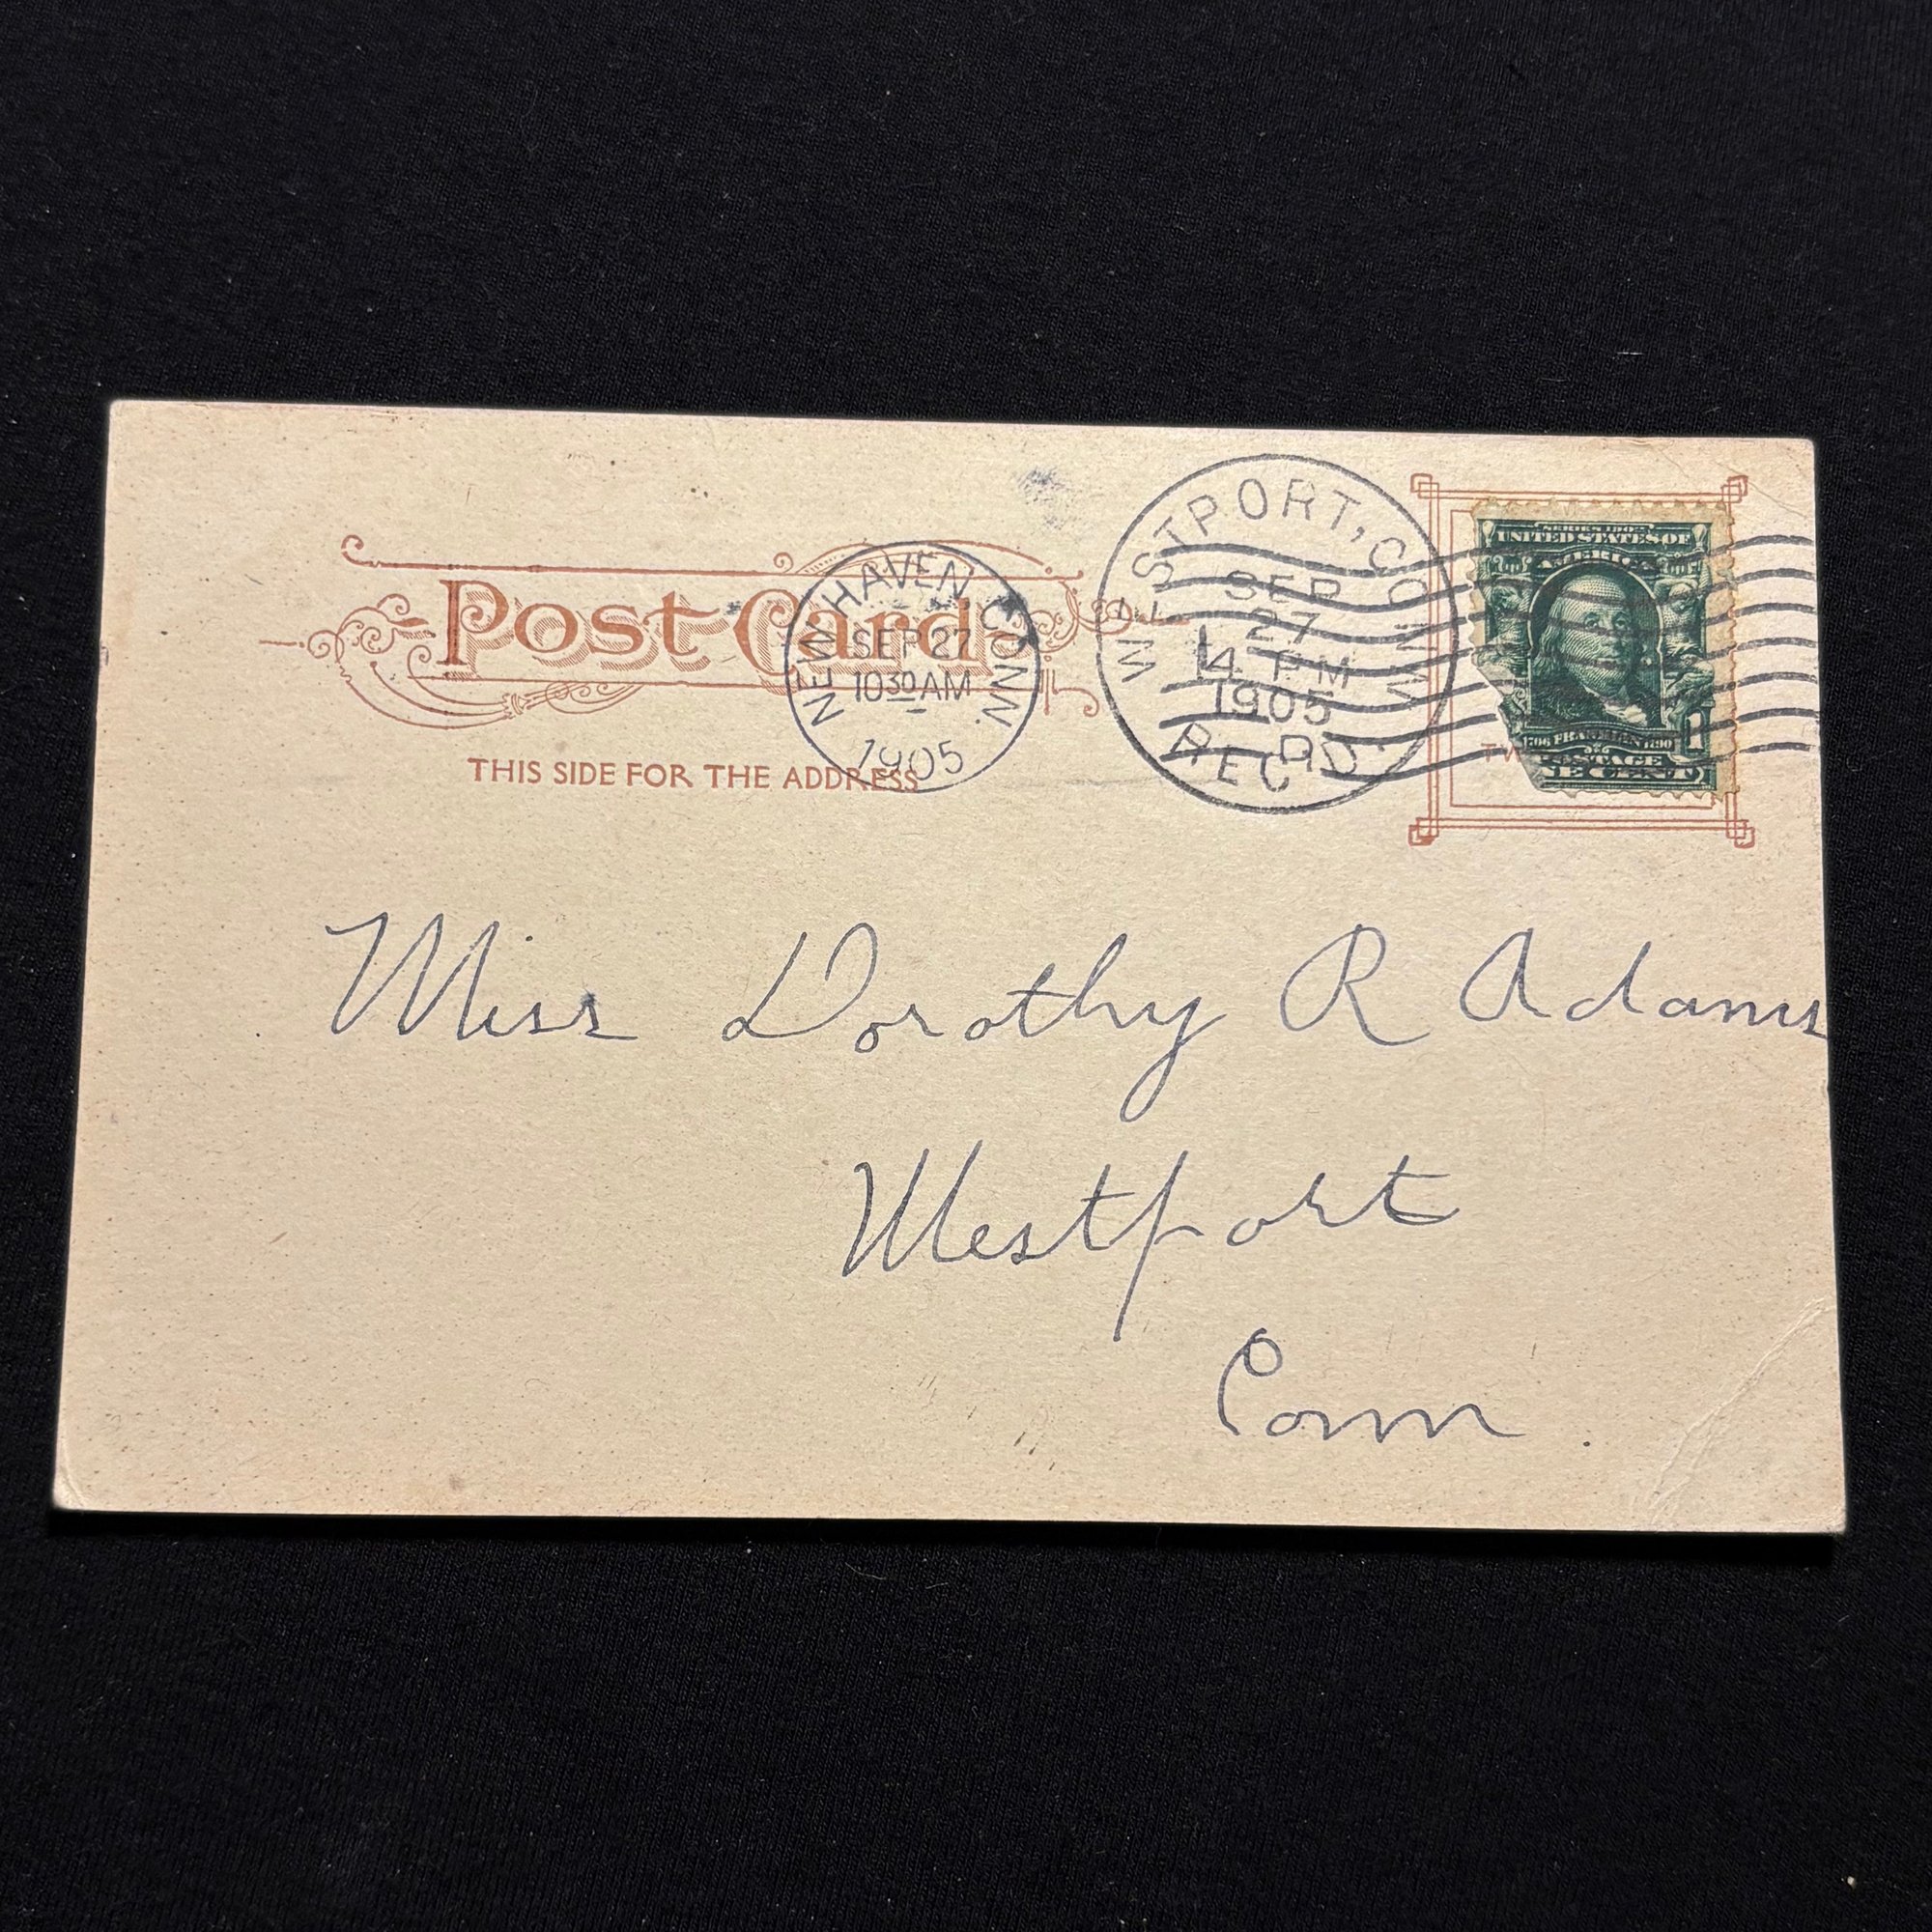 Post Card
THIS SIDE FOR THE ADDRESS
NEW HAVEN CONN.
SEP 27
10 30 AM
1905
WESTPORT, CONN.
SEP
27
4 PM
1905
REC'D.
SERIES 1902
UNITED STATES OF
AMERICA
1706 FRANKLIN 1790
1
POSTAGE
NE CENT
TW
Miss Dorothy R Adams
Westport
Conn.